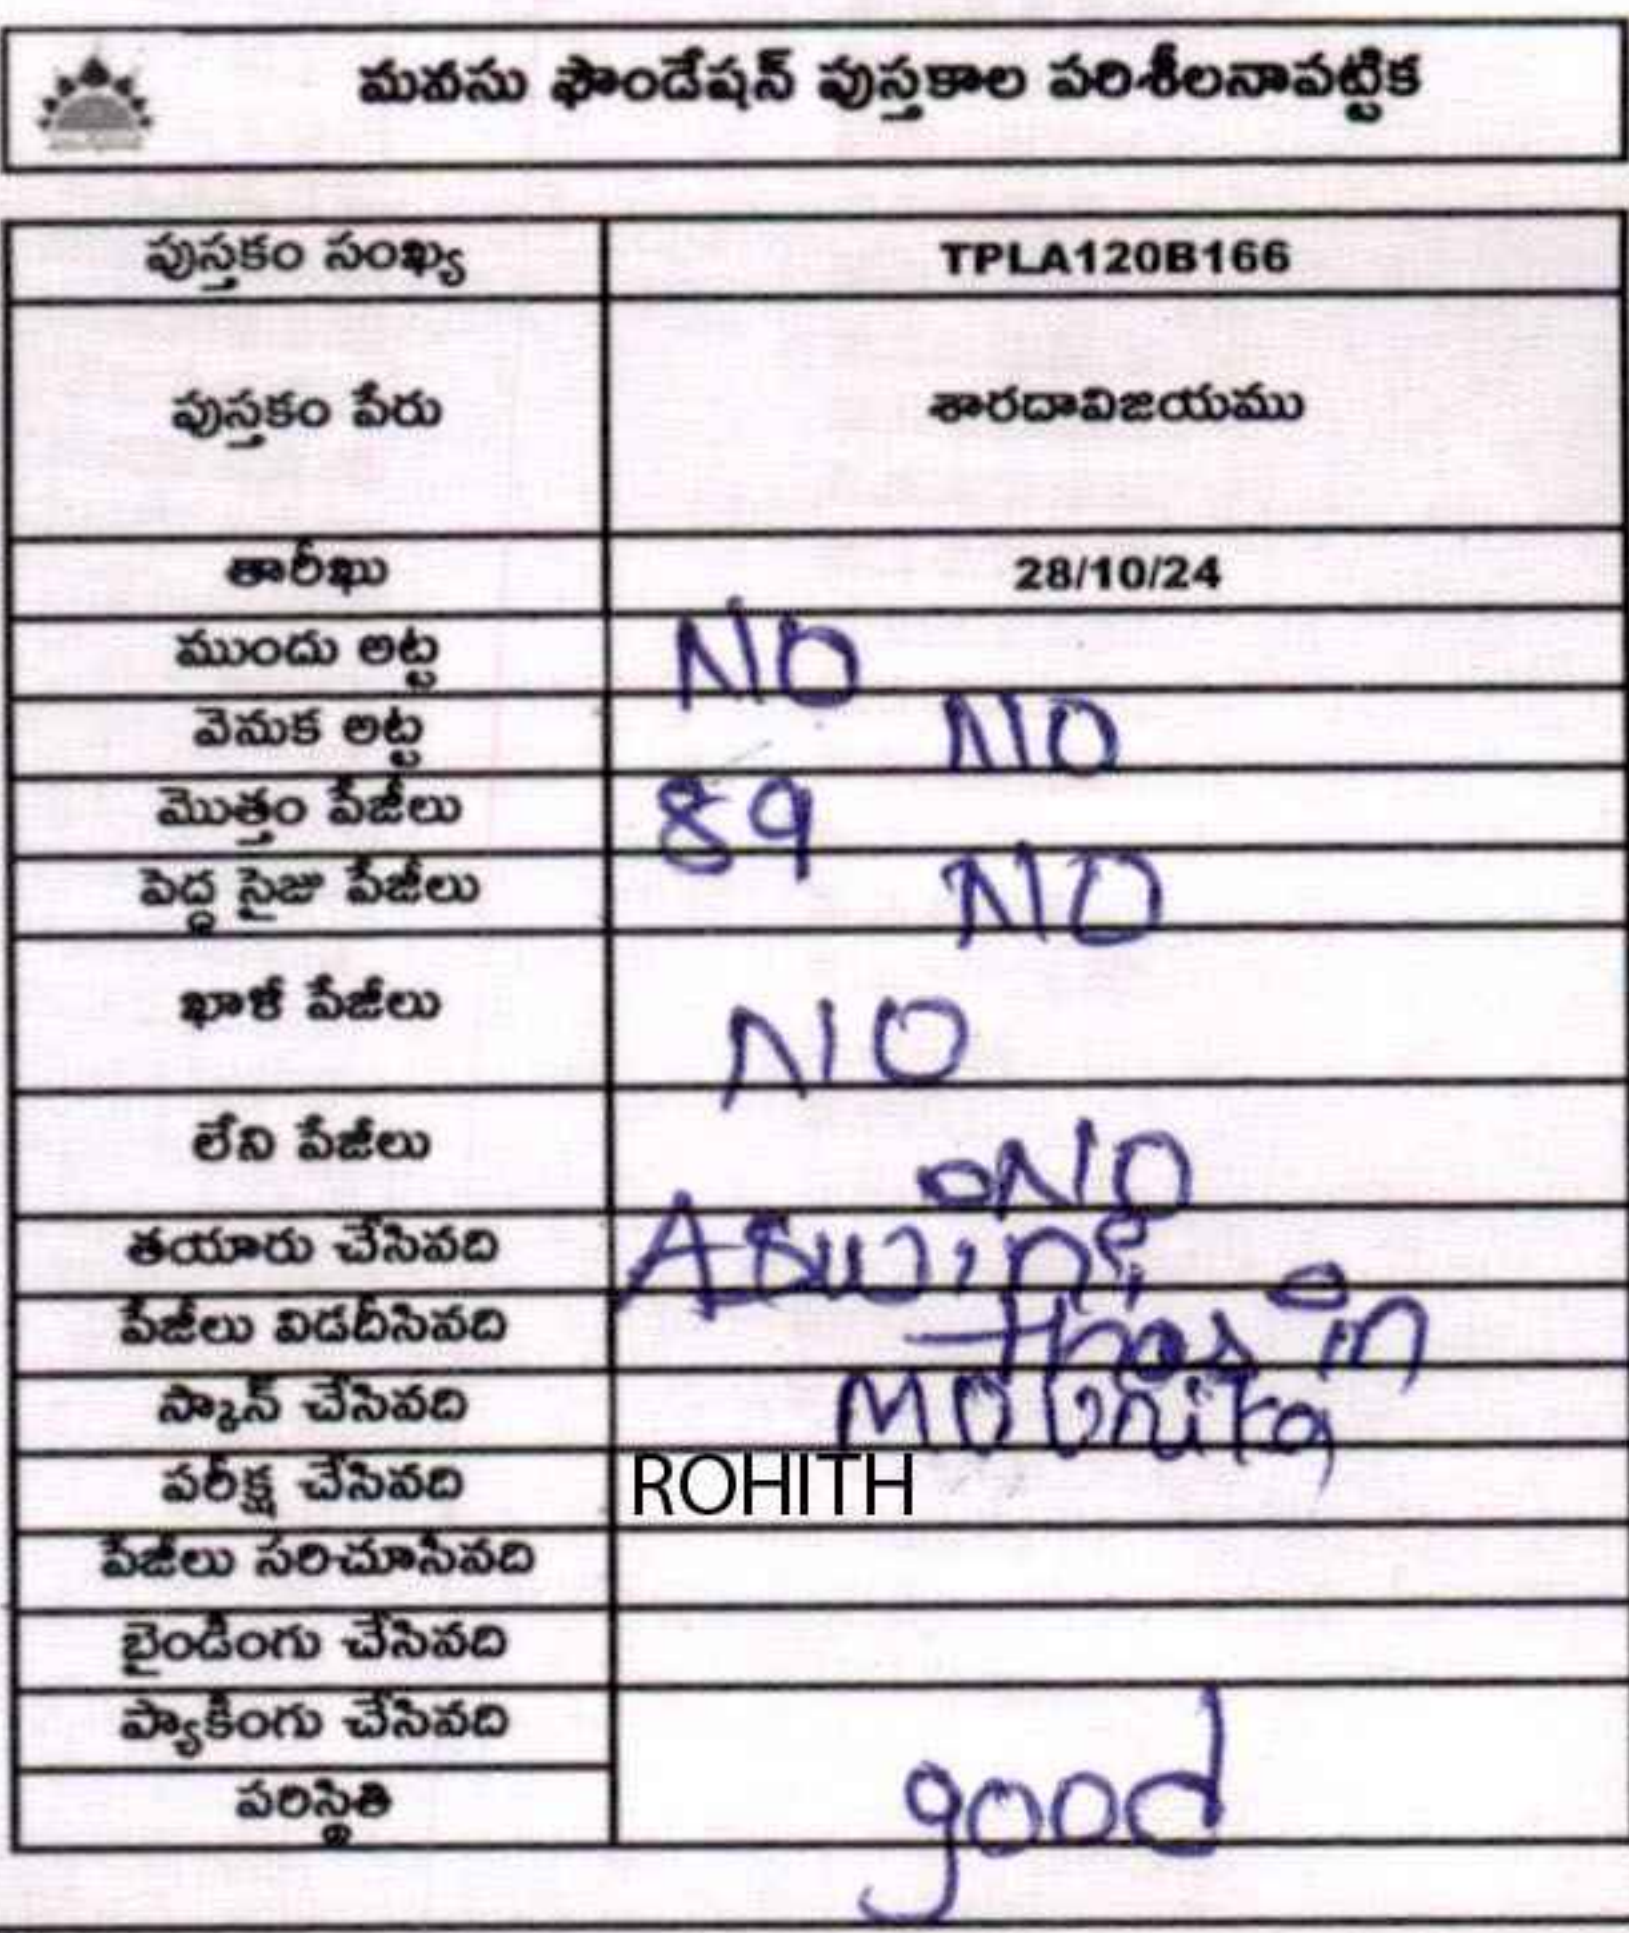 మనసు ఫౌండేషన్ పుస్తకాల పరిశీలనాపట్టిక
పుస్తకం సంఖ్య TPLA120B166
పుస్తకం పేరు శారదావిజయము
తారీఖు 28/10/24
ముందు అట్ట NO
వెనుక అట్ట NO
మొత్తం పేజీలు 89
పెద్ద సైజు పేజీలు NO
ఖాళీ పేజీలు NO
లేని పేజీలు NO
తయారు చేసినది
పేజీలు విడదీసినది
స్కాన్ చేసినది Mounika
పరీక్ష చేసినది ROHITH
పేజీలు సరిచూసినది
బైండింగు చేసినది
ప్యాకింగు చేసినది
పరిస్థితి good